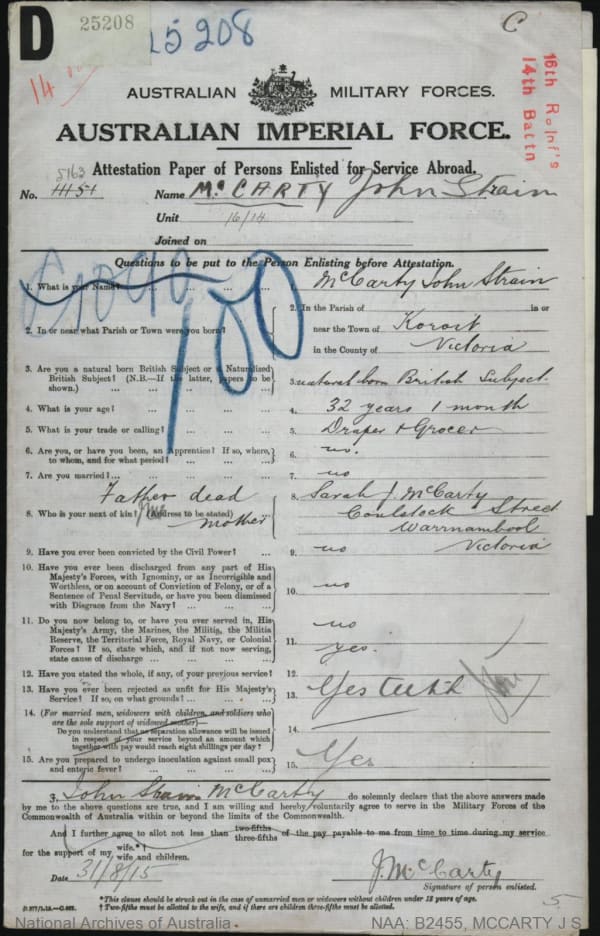 D
25208
25 208
C
14
16th Reinf's
14th Battn
AUSTRALIAN MILITARY FORCES.
AUSTRALIAN IMPERIAL FORCE.
Attestation Paper of Persons Enlisted for Service Abroad.
5163
No. 4151 Name McCARTY John Strain
Unit 16/14
Joined on
Questions to be put to the Person Enlisting before Attestation.
1. What is your Name? ... ... ... ... 1. McCarty John Strain
2. In or near what Parish or Town were you born? 2. In the Parish of in or
near the Town of Koroit
in the County of Victoria
3. Are you a natural born British Subject or a Naturalized
British Subject? (N.B.—If the latter, papers to be
shown.) ... ... ... ... 3. natural born British Subject.
4. What is your age? ... ... ... ... 4. 32 years 1 month
5. What is your trade or calling? ... ... ... 5. Draper & Grocer
6. Are you, or have you been, an Apprentice? If so, where,
to whom, and for what period? ... ... 6. no.
7. Are you married? ... ... ... ... 7. no
Father dead
8. Who is your next of kin? (Address to be stated) mother
8. Sarah J. McCarty
Coulstock Street
Warrnambool
Victoria
9. Have you ever been convicted by the Civil Power? ... 9. no
10. Have you ever been discharged from any part of His
Majesty's Forces, with Ignominy, or as Incorrigible and
Worthless, or on account of Conviction of Felony, or of a
Sentence of Penal Servitude, or have you been dismissed
with Disgrace from the Navy? ... ... ... 10. no
11. Do you now belong to, or have you ever served in, His
Majesty's Army, the Marines, the Militia, the Militia
Reserve, the Territorial Force, Royal Navy, or Colonial
Forces? If so, state which, and if not now serving,
state cause of discharge ... ... ... 11. no
12. Have you stated the whole, if any, of your previous service? yes.
13. Have you ever been rejected as unfit for His Majesty's
Service? If so, on what grounds? ... ... 13. Yes teeth
14. (For married men, widowers with children, and soldiers who
are the sole support of widowed mother)—
Do you understand that no separation allowance will be issued
in respect of your service beyond an amount which
together with pay would reach eight shillings per day? 14.
15. Are you prepared to undergo inoculation against small pox
and enteric fever? ... ... ... ... 15. Yes
I, John Strain McCarty do solemnly declare that the above answers made
by me to the above questions are true, and I am willing and hereby voluntarily agree to serve in the Military Forces of the
Commonwealth of Australia within or beyond the limits of the Commonwealth.
And I further agree to allot not less than two-fifths three-fifths of the pay payable to me from time to time during my service
for the support of my wife.*† wife and children.
Date 31/8/15 J. McCarty
Signature of person enlisted.
*This clause should be struck out in the case of unmarried men or widowers without children under 18 years of age.
† Two-fifths must be allotted to the wife, and if there are children three-fifths must be allotted.
National Archives of Australia NAA: B2455, MCCARTY J S